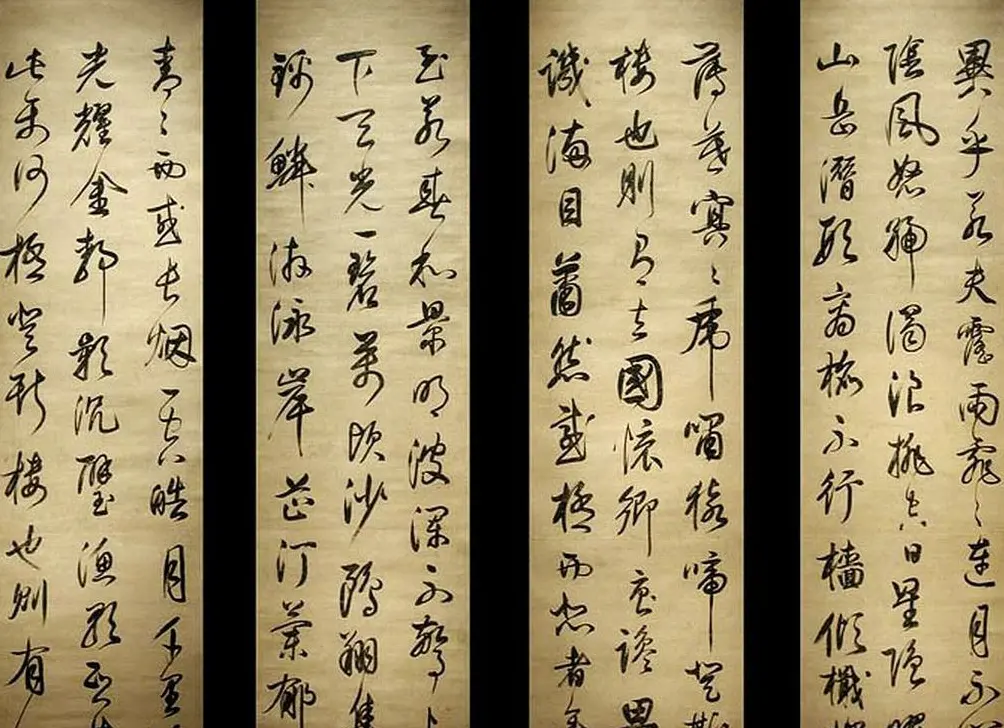 異乎若夫霪雨霏〻連月不
陰風怒號濁浪排空日星隱曜
山岳潛形商旅不行檣傾楫
薄暮冥〻虎嘯猿啼登斯
樓也則有去國懷鄉憂讒畏
譏滿目蕭然感極而悲者矣
至若春和景明波瀾不驚上
下天光一碧萬頃沙鷗翔集
錦鱗游泳岸芷汀蘭郁
青〻而或長烟一空皓月千里
光耀金靜影沉璧漁歌互答
此樂何極登斯樓也則有